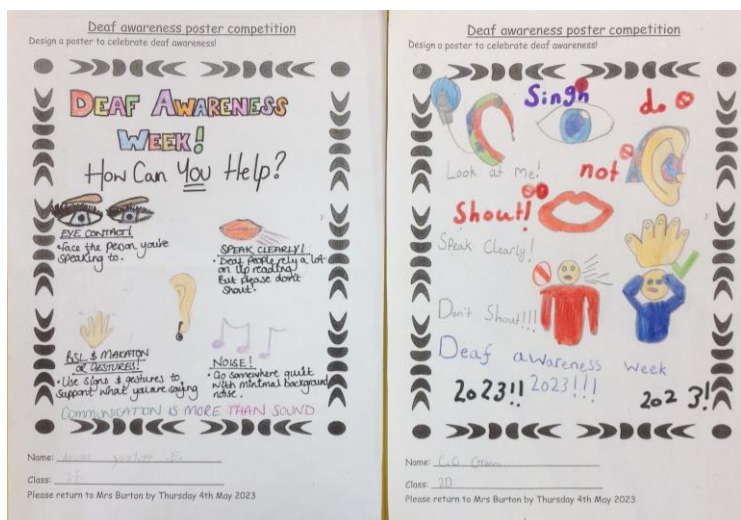 Deaf awareness poster competition
Design a poster to celebrate deaf awareness!
DEAF AWARENESS
WEEK!
HOW CAN YOU HELP?
EYE CONTACT!
• face the person you're
speaking to.
SPEAK CLEARLY!
• Deaf people rely a lot
on lip reading
But please don't
shout.
BSL & MAKATON
or GESTURES!
• Use signs & gestures to
support what you are saying
NOISE!
• Go somewhere quiet
with minimal background
noise.
COMMUNICATION IS MORE THAN SOUND
Name:
Class:
Please return to Mrs Burton by Thursday 4th May 2023
Deaf awareness poster competition
Design a poster to celebrate deaf awareness!
Singn
do
Look at me!
not
Shout!
Speak Clearly!
Don't Shout!!!
Deaf awareness week
2023!! 2023!!! 2023!
Name:
Class: 2D
Please return to Mrs Burton by Thursday 4th May 2023